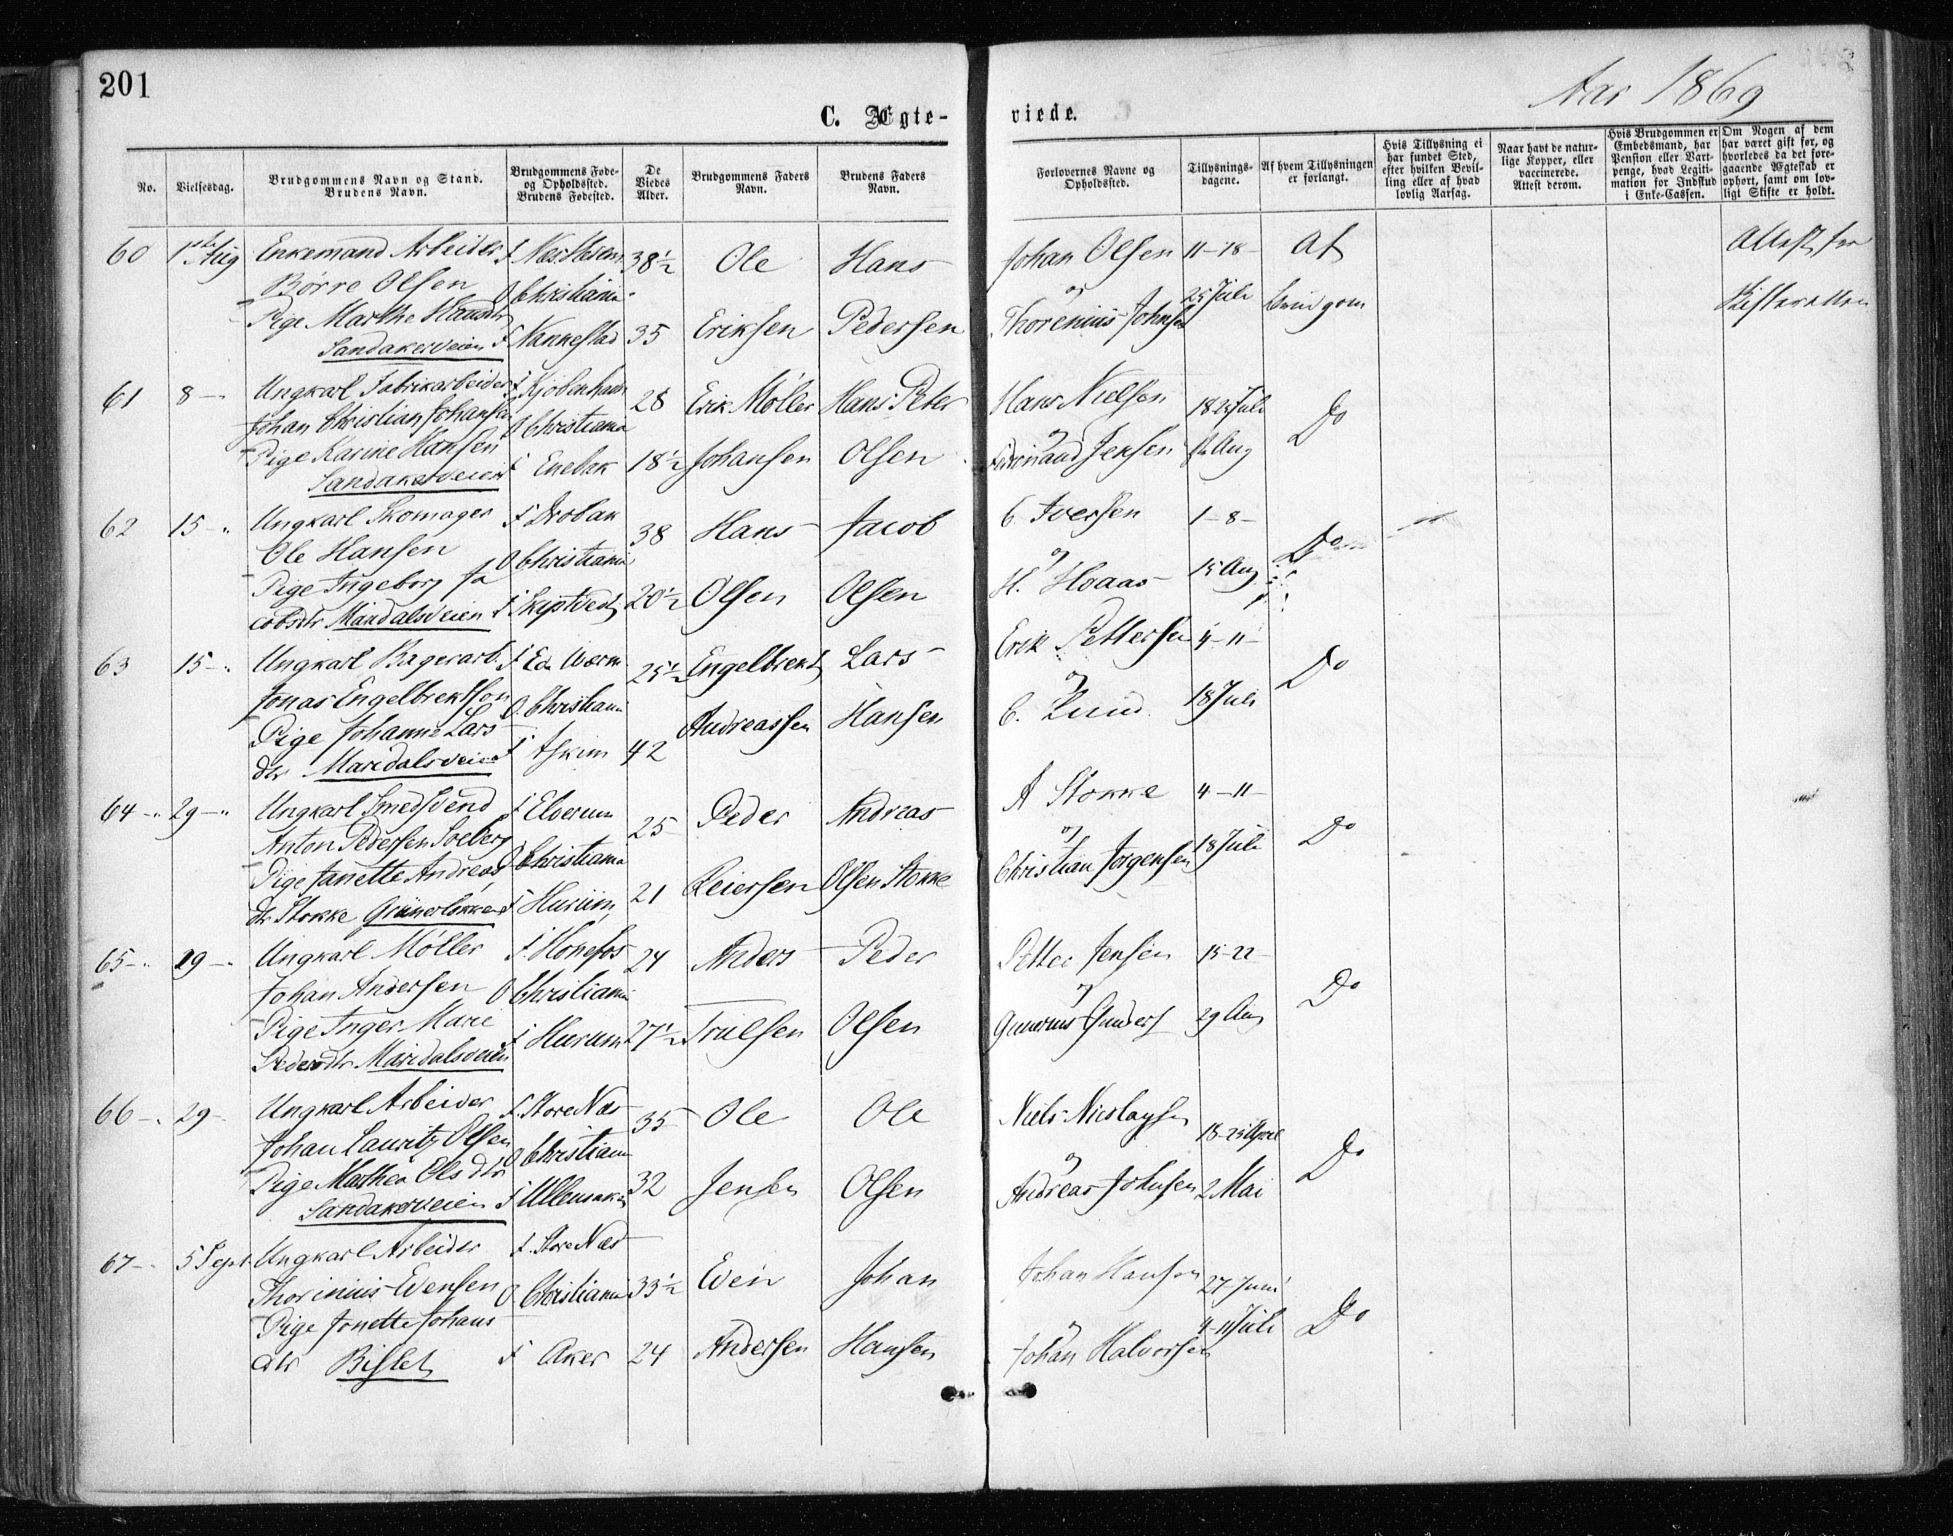 201
Aar 1869
C. Ægte-
viede.
No.
Vielsesdag.
Brudgommens Navn og Stand.
Brudens Navn.
Brudgommens Føde-
og Opholdssted.
Brudens Fødested.
De
Viedes
Alder.
Brudgommens Faders
Navn.
Brudens Faders
Navn.
Forlovernes Navne og
Opholdssted.
Tillysnings-
dagene.
Af hvem Tillysningen
er forlangt.
Hvis Tillysning ei
har fundet Sted,
efter hvilken Bevil-
ling eller af hvad
lovlig Aarsag.
Naar havt de natur-
lige Kopper, eller
vaccinerede.
Attest derom.
Hvis Brudgommen er
Embedsmand, har
Pension eller Vart-
penge, hvad Legiti-
mation for Indskud
i Enke-Cassen.
Om Nogen af dem
har været gift før, og
hvorledes da det fore-
gaaende Ægteskab er
ophørt, samt om lov-
ligt Skifte er holdt.
60 1ste Aug Enkemand Arbeider f 38½ Ole Hans Johan Olsen 11-18- Af Attest fra
Børre Olsen O Christiania og 25 Juli brudgom Skifteretten
Pige Marthe Hansdtr f Nannestad 35 Eriksen Pedersen Thorenius Johnsen
Sandakerveien
61 8 - Ungkarl Fabrikarbeider f Kjøbenhavn 28 Erik Møller Hans Peter Hans Nielsen 18-25 Juli Do
Johan Christian Johansen O Christiania og
Pige Karine Hansen f Enebak 18½ Johansen Olsen Ferdinand Jensen Aug
Sandakerveien
62 15 - Ungkarl Skomager f Drobak 38 Hans Jacob C. Iversen 1-8- Do
Ole Hansen O Christiania og
Pige Ingeborg Ja H. Hoaas 15 Aug
cobsdtr Maridalsveien f Skiptvedt 20½ Olsen Olsen
63 15 - Ungkarl Bagerarb. f Eda Værm 25½ Engelbrekt Lars Erik Pettersen 4-11- Do
Jonas Engelbrektson O. Christiania og
Pige Johanne Lars Andreassen Hansen C. Lund 18 Juli
dtr Maridalsveien f Askim 42
64 29 - Ungkarl Smedsvend f Elverum 25 Peder Andreas A Stokke 4-11- Do
Anton Pedersen Solberg O Christiania og
Pige Janette Andreas Christian Jørgensen 18 Juli
dtr Stokke Grünerløkken f Hurum 21 Reiersen Olsen Stokke
65 29 - Ungkarl Møller f Hønefos 24 Anders Peder Petter Jensen 15-22- Do
Johan Andersen O Christiania og
Pige Inger Marie f Hurum 27½ Trulsen Olsen Gunerius 29 Aug
Pedersdtr Maridalsveien
66 29 - Ungkarl Arbeider f. Store Næs 35 Ole Ole Niels Nicolaysen 18-25 April Do
Johan Lauritz Olsen O Christiania og
Pige Marthea Olsdtr f Ullensaker 32 Jensen Olsen Andreas Johnsen 2 Mai
Sandakerveien
67 5 Sept Ungkarl Arbeider f. Store Næs 33½ Even Johan Johan Hansen 27 Juni Do
Thorinius Evensen O. Christiania og 4-11 Juli
Pige Jonette Johans
dtr Bislet f Aker 24 Andersen Hansen Johan Halvorsen